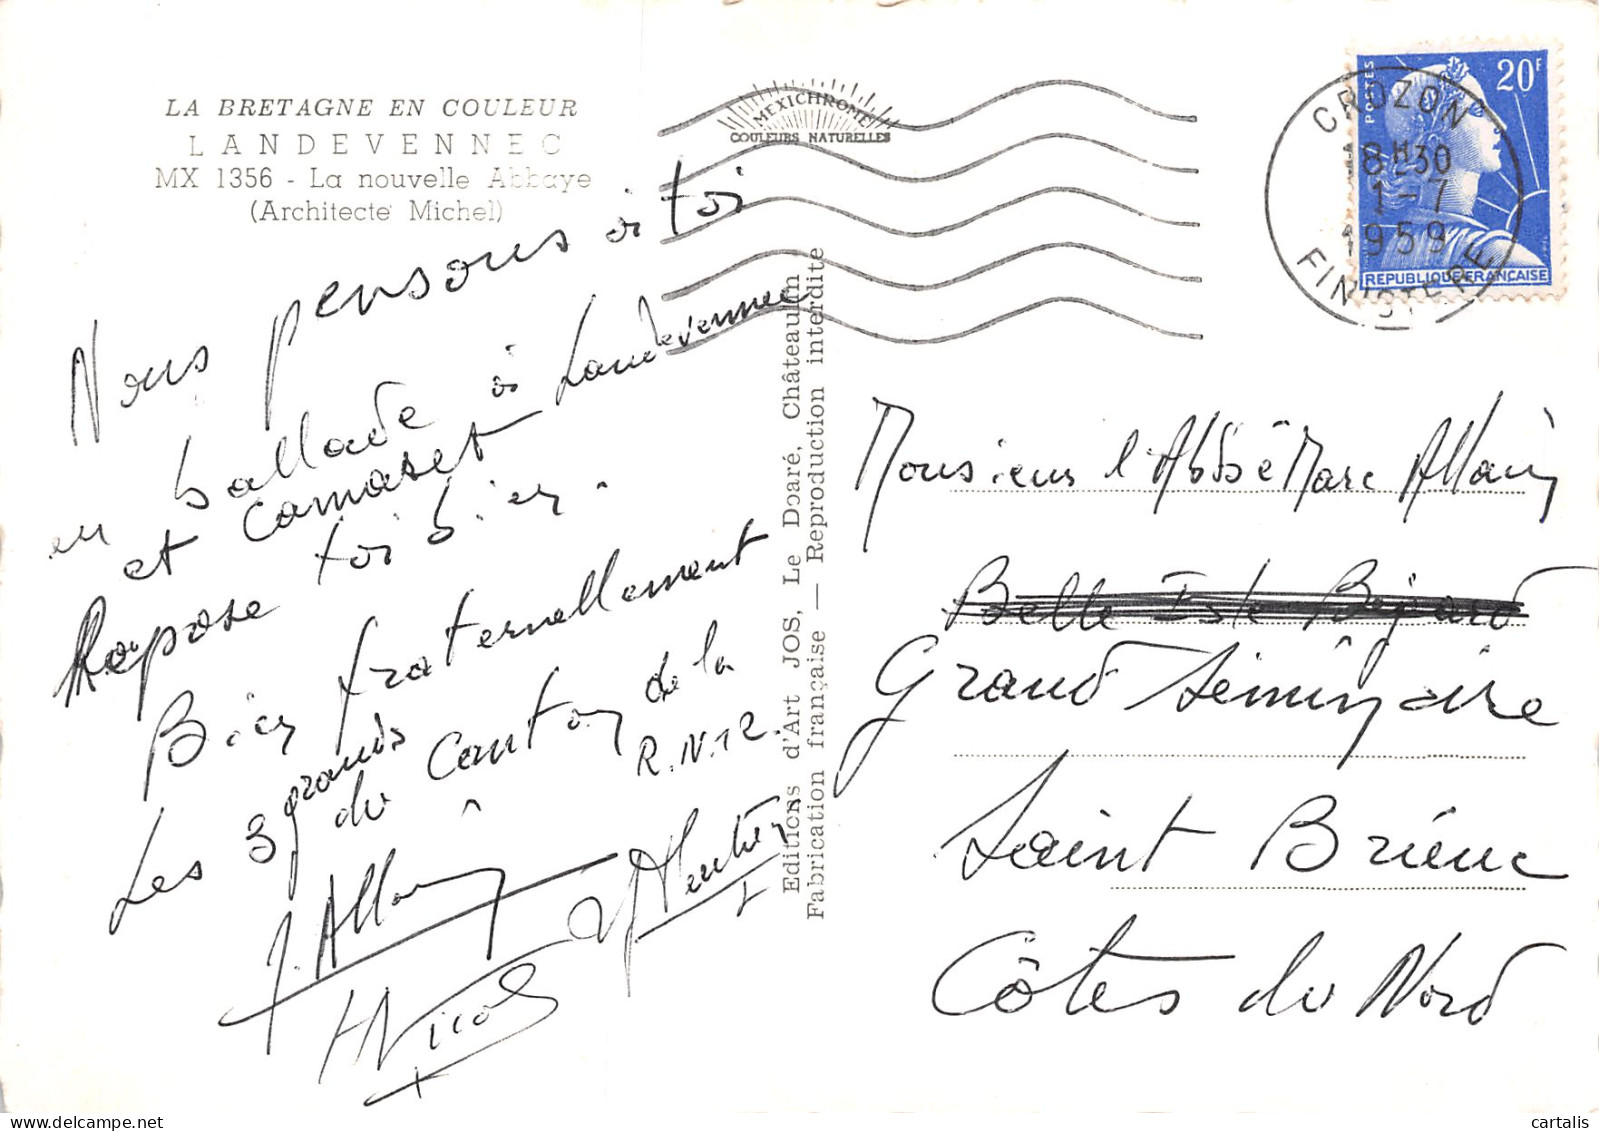 LA BRETAGNE EN COULEUR
LANDEVENNEC
MX 1356 - La nouvelle Abbaye
(Architecte Michel)
MEXICHROME
COULEURS NATURELLES
POSTES
20F
REPUBLIQUE FRANÇAISE
CROZON
18H30
1-7
1959
FINISTERE
Nous pensons à toi
en ballade à Landevennec
et Camaret
Repose toi bien.
Bien fraternellement
Les 3 grands
du Canton de la
R.N.12.
J. Allain
H Nicol
Editions d'Art JOS, Le Doaré, Châteaulin
Fabrication française — Reproduction interdite
Monsieur l'Abbé Marc Allain
Belle Isle Bégard
Grand Séminaire
Saint Brieuc
Côtes du Nord
cartalis